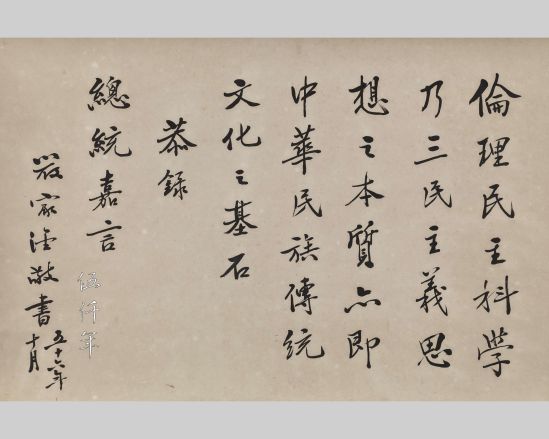 倫理民主科學
乃三民主義思
想之本質亦即
中華民族傳統
文化之基石
恭錄
總統嘉言
嚴家淦敬書
五十六年
十月
伍仟年